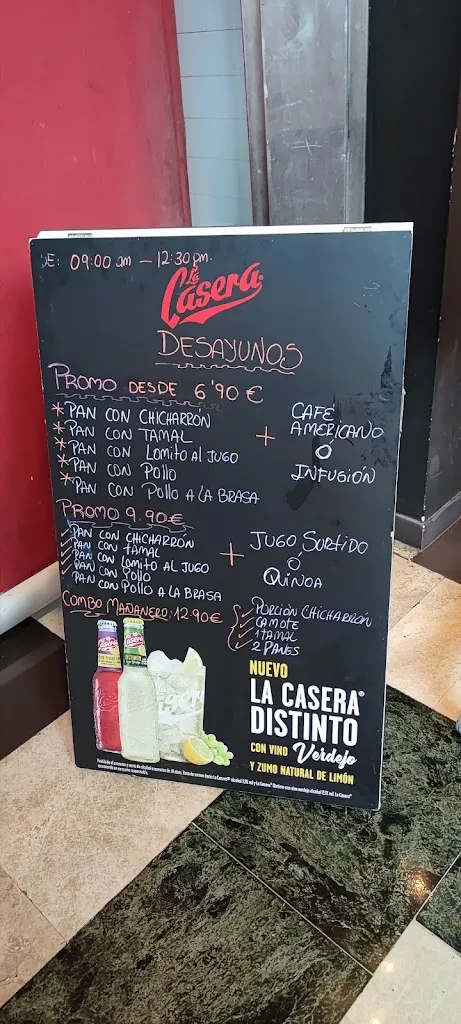 DE: 09:00 am — 12:30 pm.
La
Casera
DESAYUNOS
PROMO DESDE 6'90 €
* PAN CON CHICHARRÓN
* PAN CON TAMAL
* PAN CON LOMITO AL JUGO
* PAN CON POLLO
* PAN CON POLLO A LA BRASA
+
CAFE
AMERICANO
O
INFUSIÓN
PROMO 9.90€
PAN CON CHICHARRÓN
PAN CON TAMAL
PAN CON LOMITO AL JUGO
PAN CON POLLO
PAN CON POLLO A LA BRASA
+
JUGO SURTIDO
O
QUINOA
COMBO MAÑANERO: 12.90€
PORCIÓN CHICHARRÓN
CAMOTE
1 TAMAL
2 PANES
NUEVO
LA CASERA®
DISTINTO
CON VINO Verdejo
Y ZUMO NATURAL DE LIMÓN